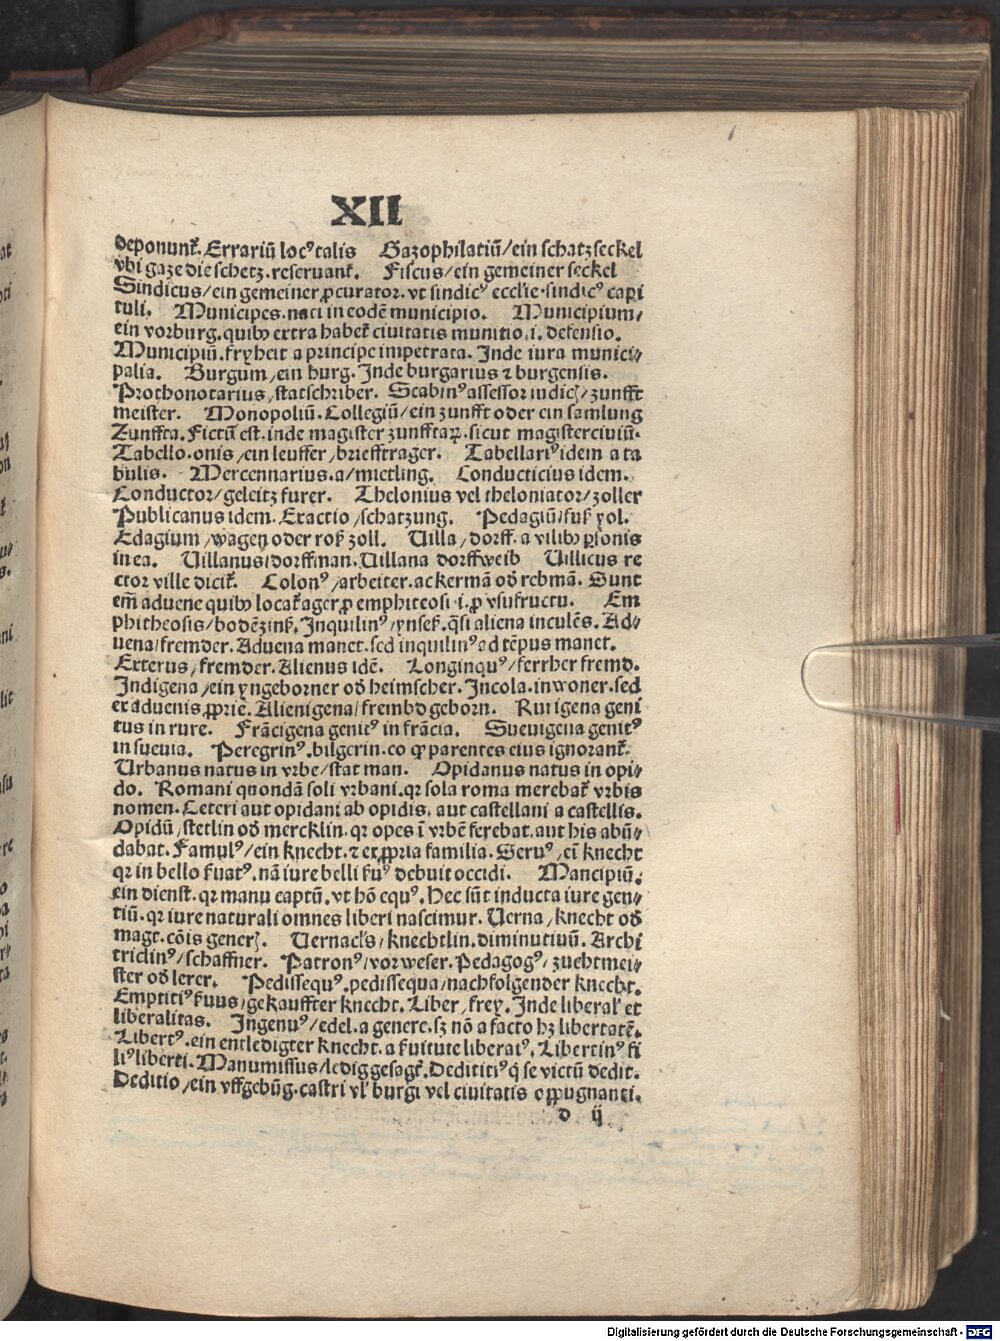 XII
deponunt᷑. Errariū locꝰ talis Gazophilatiū/ein schatzseckel
vbi gaze die schetz.reseruant᷑. Fiscus/ein gemeiner seckel
Sindicus/ein gemeiner ꝓcurator. vt sindicꝰ eccl'ie.sindicꝰ capi
tuli. Municipes.nati in eodē municipio. Municipium/
ein vorburg.quibꝫ extra habet᷑ ciuitatis munitio.i. defensio.
Municipiū.fryheit a principe impetrata. Inde iura munici⸗
palia. Burgum/ein burg. Inde burgarius ⁊ burgensis.
Prothonotarius/statschriber. Scabinꝰ assessor iudicꝭ/zunfft
meister. Monopoliū. Collegiū/ein zunfft oder ein samlung
Zunffta. Fictū est. inde magister zunfftaꝝ.sicut magisterciuiū.
Tabello.onis/ein leuffer/briefftrager. Tabellariꝰ idem a ta
bulis. Mercennarius.a/mietling. Conducticius idem.
Conductor/geleitz furer. Thelonius vel theloniator/zoller
Publicanus idem. Exactio/schatzung. Pedagiū/fuß zol.
Edagium/wagen oder roß zoll. Villa/dorff. a vilibꝫ ꝑsonis
in ea. Villanus/dorffman. Villana dorffweib Villicus re
ctor ville dicit᷑. Colonꝰ/arbeiter.ackermā oď rebmā. Sunt
em̄ aduene quibꝫ locat᷑ ager ꝓ emphiteosi.i.ꝓ vsufructu. Em
phitheosis/bodēzinß. Inquilinꝰ/ynseß.q̄si aliena inculēs. Ad⸗
uena/fremder. Aduena manet.sed inquilinꝰ ad tēpus manet.
Exterus/fremder. Alienus idē. Longinquꝰ/ferrher fremd.
Indigena/ein yngeborner oď heimscher. Incola.inwoner.sed
ex aduenis ꝓprie. Alienigena/frembd geborn. Rurigena geni
tus in rure. Frācigena genitꝰ in frācia. Sueuigena genitꝰ
in sueuia. Peregrinꝰ.bilgerin.eo ꝙ parentes eius ignorant᷑.
Urbanus natus in vrbe/stat man. Opidanus natus in opi⸗
do. Romani quondā soli vrbani.qꝛ sola roma merebat᷑ vrbis
nomen. Ceteri aut opidani ab opidis. aut castellani a castellis.
Opidū/stetlin oď mercklin.qꝛ opes ī vrbē ferebat.aut his abū⸗
dabat. Famulꝰ/ein knecht.⁊ ex ꝓpria familia. Seruꝰ/eī knecht
qꝛ in bello ẜuatꝰ.nā iure belli ẜuꝰ debuit occidi. Mancipiū.
ein dienst.qꝛ manu captū.vt hō equꝰ. Hec sūt inducta iure gen⸗
tiū.qꝛ iure naturali omnes liberi nascimur. Verna/knecht oď
magt.cōis generꝭ. Vernacl's/knechtlin.diminutiuū. Archi
triclinꝰ/schaffner. Patronꝰ/vorweser. Pedagogꝰ/zuchtmei⸗
ster oď lerer. Pedissequꝰ.pedissequa/nachfolgender knecht.
Emptitiꝰ ẜuus/gekauffter knecht. Liber/frey. Inde liberal' et
liberalitas. Ingenuꝰ/edel.a genere.sꝫ nō a facto hꝫ libertatē.
Libertꝰ.ein entledigter knecht.a ẜuitute liberatꝰ. Libertinꝰ fi
liꝰ liberti. Manumissus/ledig gesagt. Dedititiꝰ q̇ se victū dedit.
Deditio/ein vffgebūg.castri vl' burgi vel ciuitatis oppugnanti.
d ij
Digitalisierung gefördert durch die Deutsche Forschungsgemeinschaft - DFG